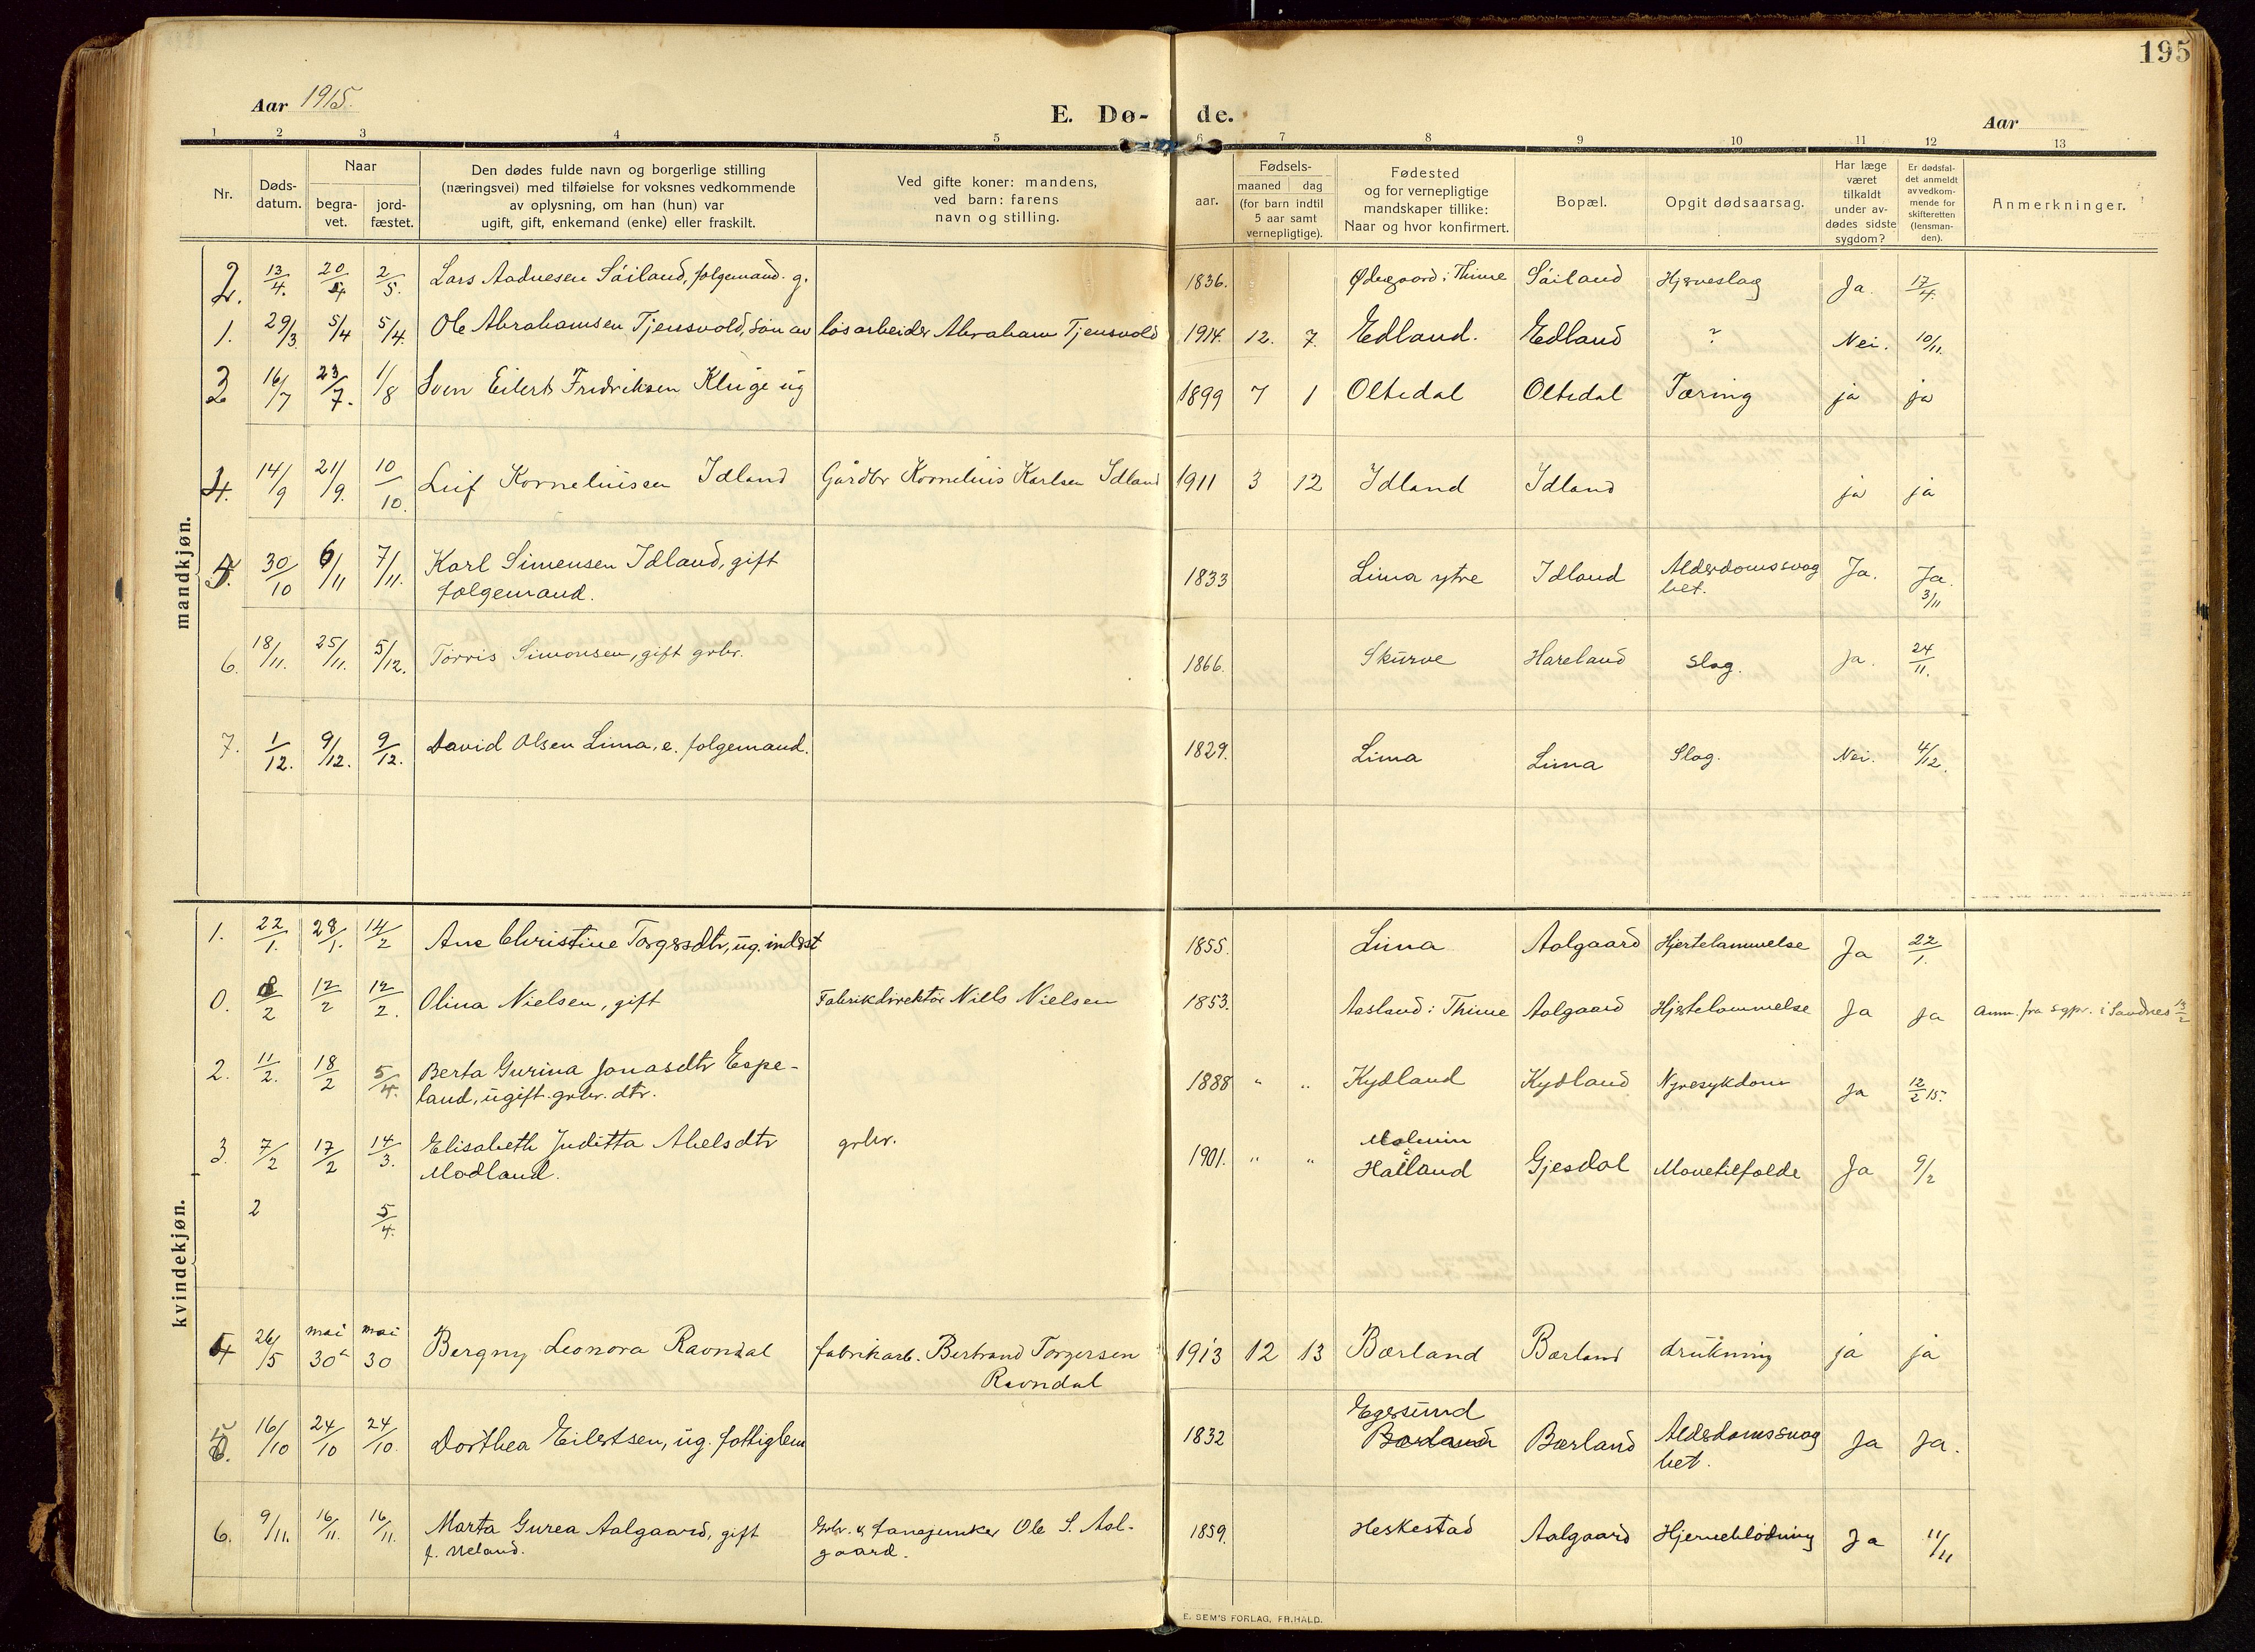 195
Aar 1915.
E. Dø- de.
Aar
1 2 3 4 5 6 7 8 9 10 11 12 13
Nr.
Døds-
datum.
Naar
begra-
vet.
jord-
fæstet.
Den dødes fulde navn og borgerlige stilling
(næringsvei) med tilføielse for voksnes vedkommende
av oplysning, om han (hun) var
ugift, gift, enkemand (enke) eller fraskilt.
Ved gifte koner: mandens,
ved barn: farens
navn og stilling.
aar.
Fødsels-
maaned dag
(for barn indtil
5 aar samt
vernepligtige).
Fødested
og for vernepligtige
mandskaper tillike:
Naar og hvor konfirmert.
Bopæl.
Opgit dødsaarsag.
Har læge
været
tilkaldt
under av-
dødes sidste
sygdom?
Er dødsfal-
det anmeldt
av vedkom-
mende for
skifteretten
(lensman-
den).
Anmerkninger.
mandkjøn.
2. 13/4. 20/4 2/5. Lars Aadnesen Söiland, folgemand. g. 1836. Ødegaard i Thime Söiland Hjerneslag Ja. 17/4.
1. 29/3. 5/4 5/4. Ole Abrahamsen Tjensvold, søn av løsarbeider Abraham Tjensvold 1914. 12. 7. Edland. Edland ? Nei. 10/11.
3 16/7 23/7. 1/8 Sven Eilert Fredriksen Kluge ug 1899 7 1 Oltedal Oltedal Tæring ja ja
4. 14/9 21/9. 10/10. Leif Korneliussen Idland Gårdbr Kornelius Karlsen Idland 1911 3 12 Idland Idland ja ja
5. 30/10 6/11 7/11. Karl Simensen Idland, gift
folgemand. 1833 Lima ytre Idland Alderdomssvag
het. Ja. Ja.
3/11
6. 18/11. 25/11. 5/12. Torris Simonsen, gift grbr. 1866. Skurve Hareland Slag. Ja. 24/11.
7. 1/12. 9/12. 9/12. David Olsen Lima, e. folgemand. 1829. Lima Lima Slag. Nei. 4/12.
kvindekjøn.
1. 22/1. 28/1. 14/2 Ane Christine Torgersdtr, ug. inderst 1855. Lima Aalgaard Hjertelammelse Ja 22/1.
0. 8/2 12/2 12/2. Olina Nielsen, gift Fabrikdirektör Niels Nielsen 1853. Aasland i Thime Aalgaard Hjertelammelse Ja Ja Anm. fra sgpr. i Sandnes 13/2
2. 11/2. 18/2 5/4. Berta Gurina Jonasdtr Espe-
land, ugift. grbr. dtr. 1888 " " Kydland Kydland Nyresykdom Ja 12/2 15.
3. 7/2 17/2 14/3. Elisabeth Juditta Abelsdtr
Modland. grbr. 1901. " " Malmin
i
Høiland Gjesdal Mavetilfælde Ja 9/2
2 5/4.
4 26/5 mai
30 mai
30 Bergny Leonora Ravndal fabrikarb. Bertrand Torgersen
Ravndal 1913 12 13 Bærland Bærland drukning ja ja
5. 16/10 24/10 24/10. Dorthea Eilertsen, ug. fattiglem 1832 Egersund
Bærland Bærland Alderdomssvag
het. Ja Ja.
6. 9/11. 16/11. 16/11. Marta Gurea Aalgaard, gift
f. Neland. Grbr. & fanejunker Ole S. Aal-
gaard. 1859. Heskestad Aalgaard Hjerneblödning Ja 11/11
E. SEM'S FORLAG, FR.HALD.